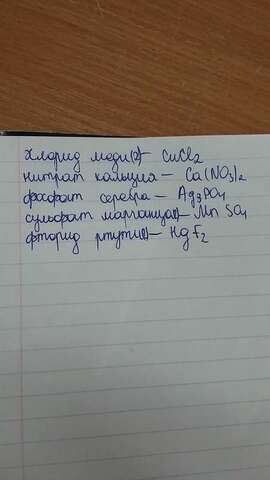 хлорид меди(2) – CuCl2
нитрат кальция – Ca(NO3)2
фосфат серебра – Ag3PO4
сульфат марганца(2) – MnSO4
фторид ртути(2) – HgF2